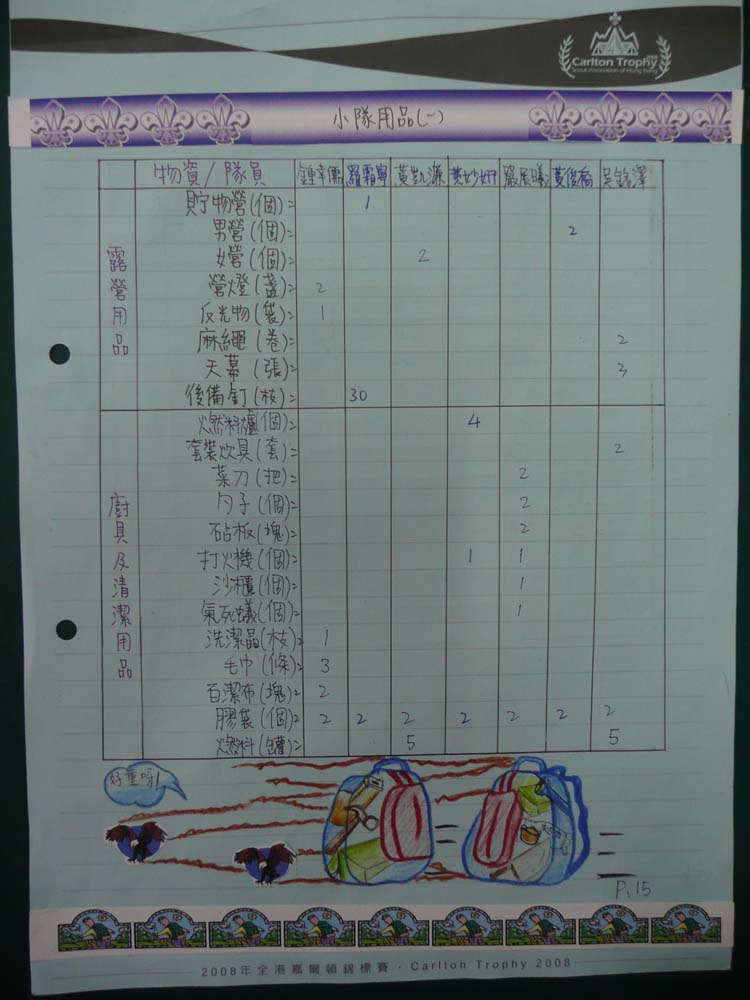 Carlton Trophy
Scout Association of Hong Kong
小隊用品(一)
物資/隊員 羅霜寧 黃凱濂 黃妙妍 嚴展曦 黃俊喬 吳銘澤
露營用品
貯物營(個)= 1
男營(個)= 2
女營(個)= 2
營燈(盞)= 2
反光物(袋)= 1
麻繩(卷)= 2
天幕(張)= 3
後備釘(枝)= 30
廚具及清潔用品
燃料爐(個)= 4
套裝炊具(套)= 2
菜刀(把)= 2
勺子(個)= 2
砧板(塊)= 2
打火機(個)= 1 1
沙櫃(個)= 1
氣死蟻(個)= 1
洗潔晶(枝)= 1
毛巾(條)= 3
百潔布(塊)= 2
膠袋(個)= 2 2 2 2 2 2 2
燃料(罐)= 5 5
好重呀!
P.15
2008年全港嘉爾頓錦標賽 · Carlton Trophy 2008